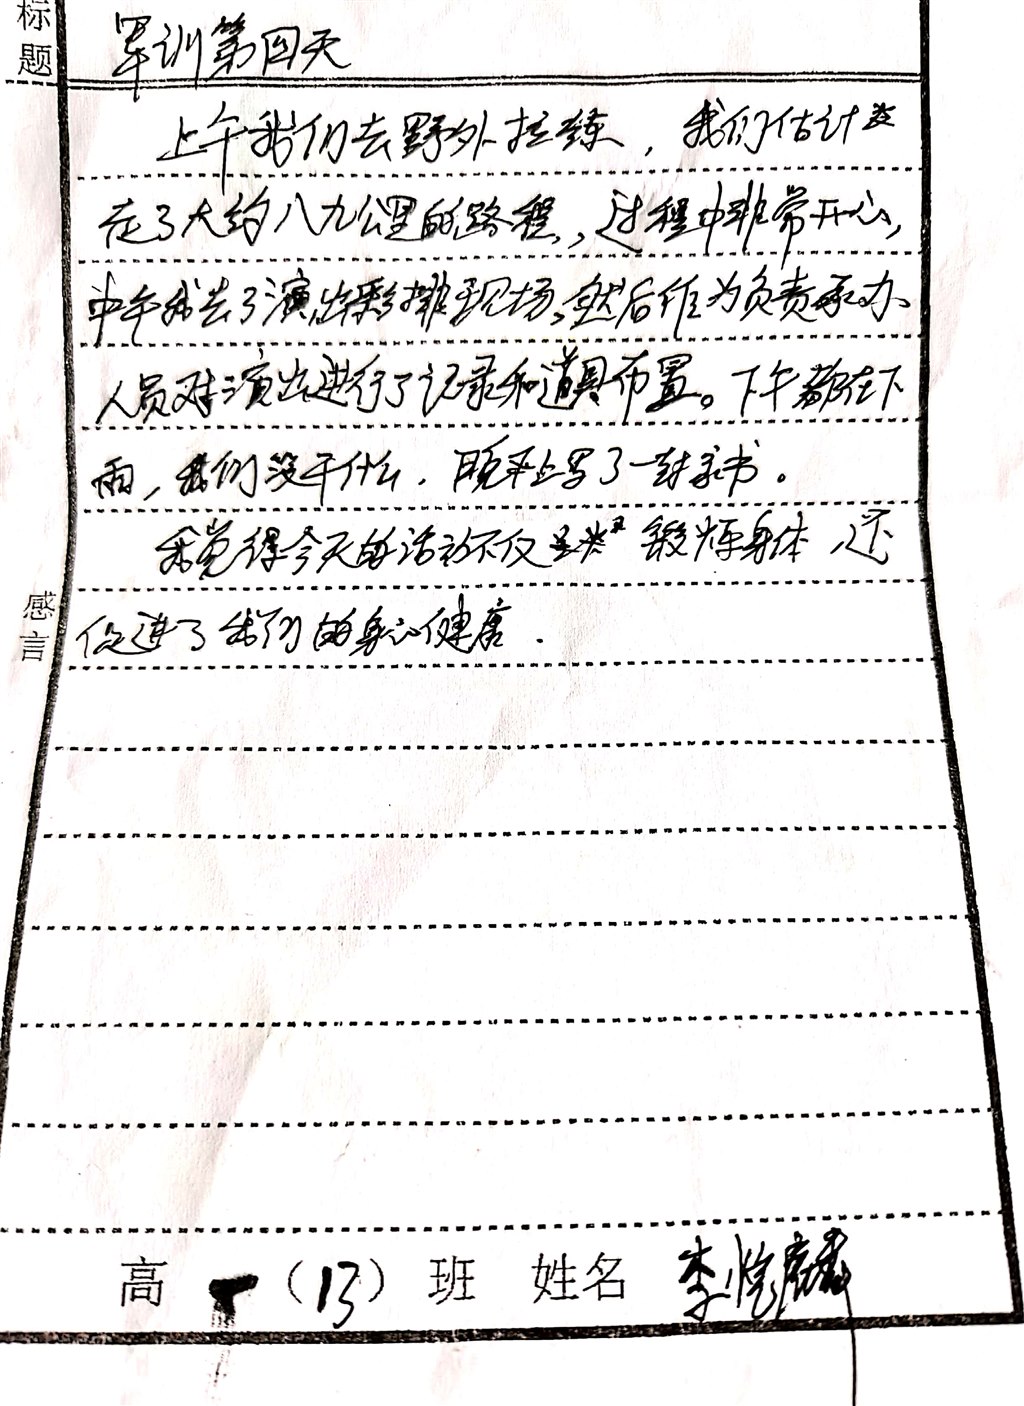 标题 军训第四天
上午我们去野外拉练，我们估计
走了大约八九公里的路程，过程中非常开心，
中午我去了演出彩排现场，然后作为负责承办
人员对演出进行了记录和道具布置。下午都在下
雨，我们没干什么，晚上写了一封家书。
我觉得今天的活动不仅是 锻炼身体，还
感言 促进了我们的身心健康.
高一（13）班 姓名 李